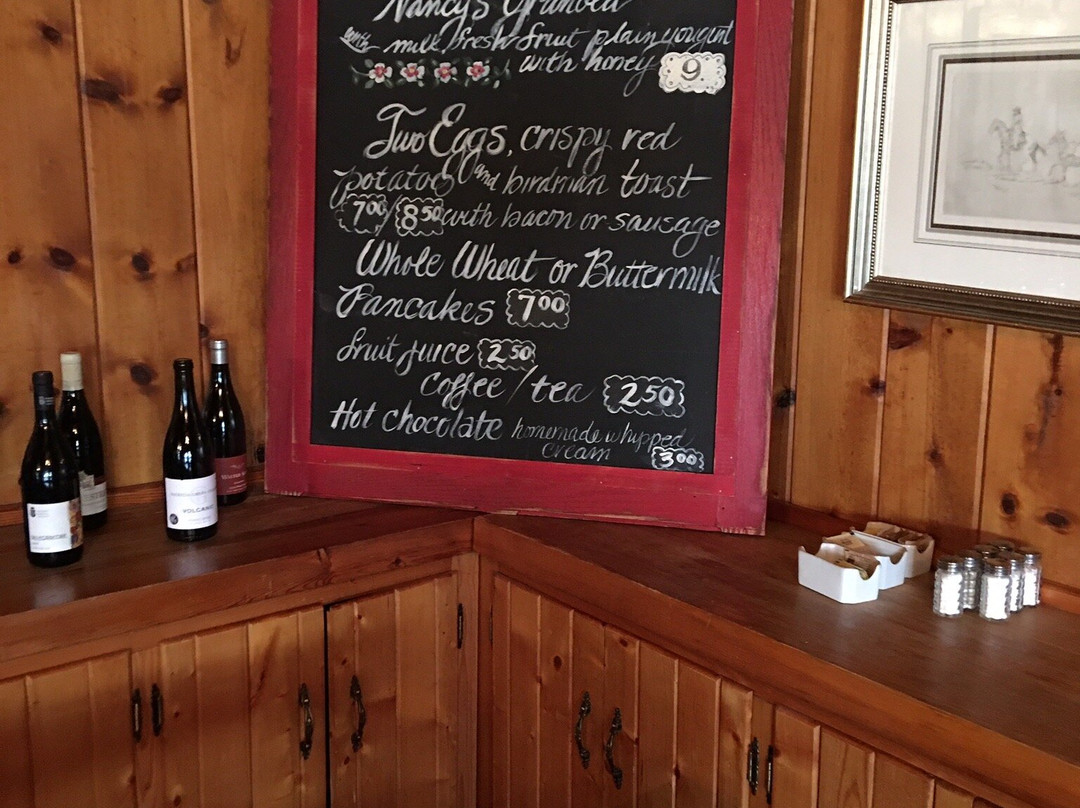 Nancy's Granola
with milk, fresh fruit plain yougurt
with honey 9.
Two Eggs, crispy red
potatoes and birdman toast
7.00/8.50 with bacon or sausage
Whole Wheat or Buttermilk
Pancakes 7.00
fruit juice 2.50
coffee / tea 2.50
Hot chocolate homemade whipped
cream 3.00
VOLCANIC